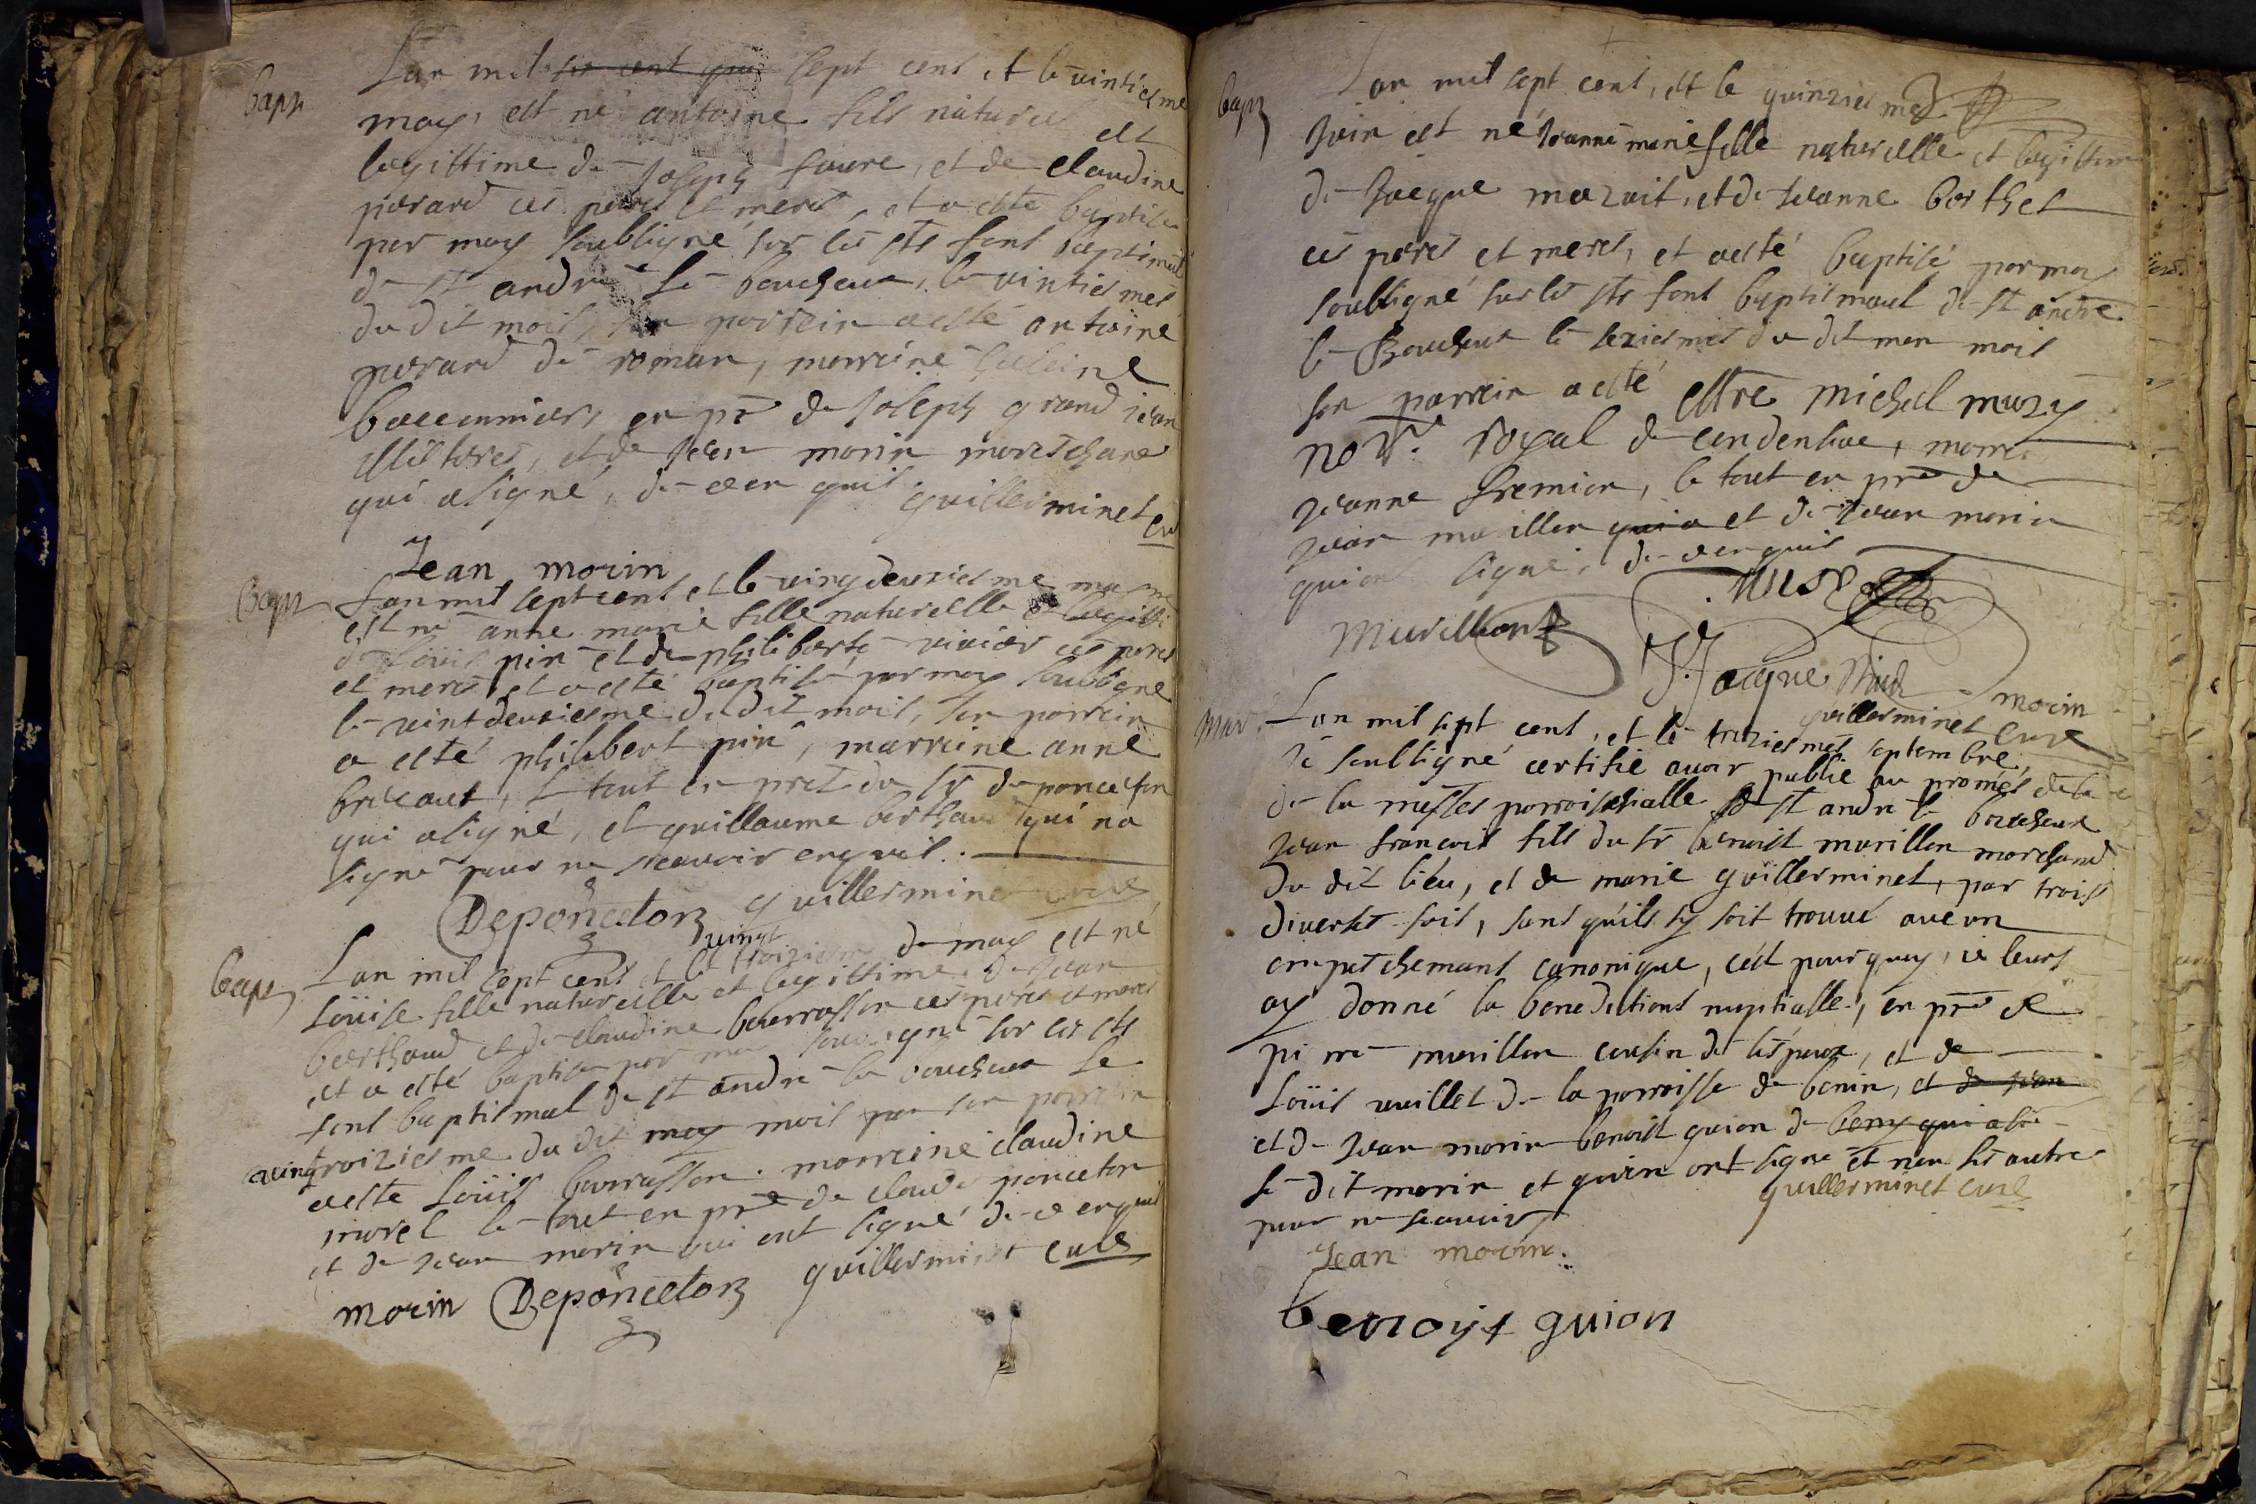 bapt
Lan mil six cent qua sept cent et le vintiesme
may, est né antoine fils naturel et
legittime de Joseph favre, et de claudine
perard ces peres et meres, et a esté baptisé
par moy soubsigné sur les sts font baptismal
de st andré le bouchoux, le vintiesmes
du dit mois, son parrein a esté antoine
perard de roman, marreine
baconnier, en pre de Joseph grand jean
et de Jean morin
qui a signé, de ce enquil guillerminet curé
Jean morin
Bapt
Lan mil sept cent et le vingdeuxiesme may
est né anne marie fille naturelle et legitti
de Louis pin et de philiberte vivier ces peres
et meres et a esté baptisé par moy soubsigné
le vintdeuxiesme du dit mois, son parrein
a esté philibert pin, marreine anne
le tout en pret du sr de ponceton
qui a signé, et guillaume berthaud qui na
signé pour ne scavoir enquil.
Deponceton guillerminet curé
bapt
Lan mil sept cent et le vingt troiziesme de may est né
Loüise fille naturelle et legittime de Jean
berthaud et de claudine bourrasson ces peres et meres
et a esté baptisé par moy soubsigné sur les sts
font baptismal de st andré le bouchoux le
vingtroiziesme du dit may mois par son parrein
a esté Loüis bourrasson. marreine claudine
morel le tout en pre de claude ponceton
et de Jean morin qui ont signé de ce enquil
morin Deponceton guillerminet curé
bapt
Lan mil sept cent, et le quinziesmes
Juin est né Jeanne marie fille naturelle et legittime
de Jacque mazuit, et de Jeanne berthet
ces peres et meres, et a esté baptisé par moy
soubsigné sur les sts font baptismaul de st andré
le Bouchoux le seziesmes du dit men mois
son parrein a esté michel muzy
royal de condensiae, marre
Jeanne fremion, le tout en pre de
Jean murillon qui a et de Jean morin
qui ont signé, de ce enquis
Muzy
Murillion
J. Jacque morin
guillerminet curé
mar
Lan mil sept cent, et le treziesmes septembre,
Je soubsigné certifie avoir publié au pronés de la
de la messes parroischialle de st andré le bouchoux
Jean françois fils du sr benoist murillon marchand
du dit lieu, et de marie guillerminet, par trois
diverses fois, sans quils sy soit trouvé aucun
empetchemant canonique, cést pourquoy, ie leurs
ay donné la benedictions nuptialle, en pre de
pierre murillon cousin de lespoux, et de
Loüis vuillet de la parroisse de benin, et de Jean
et de Jean morin benoist guion de beny qui a si
le dit morin et guion ont signé et non les autres
pour ne scavoir guillerminet curé
Jean morin.
benoyst guion